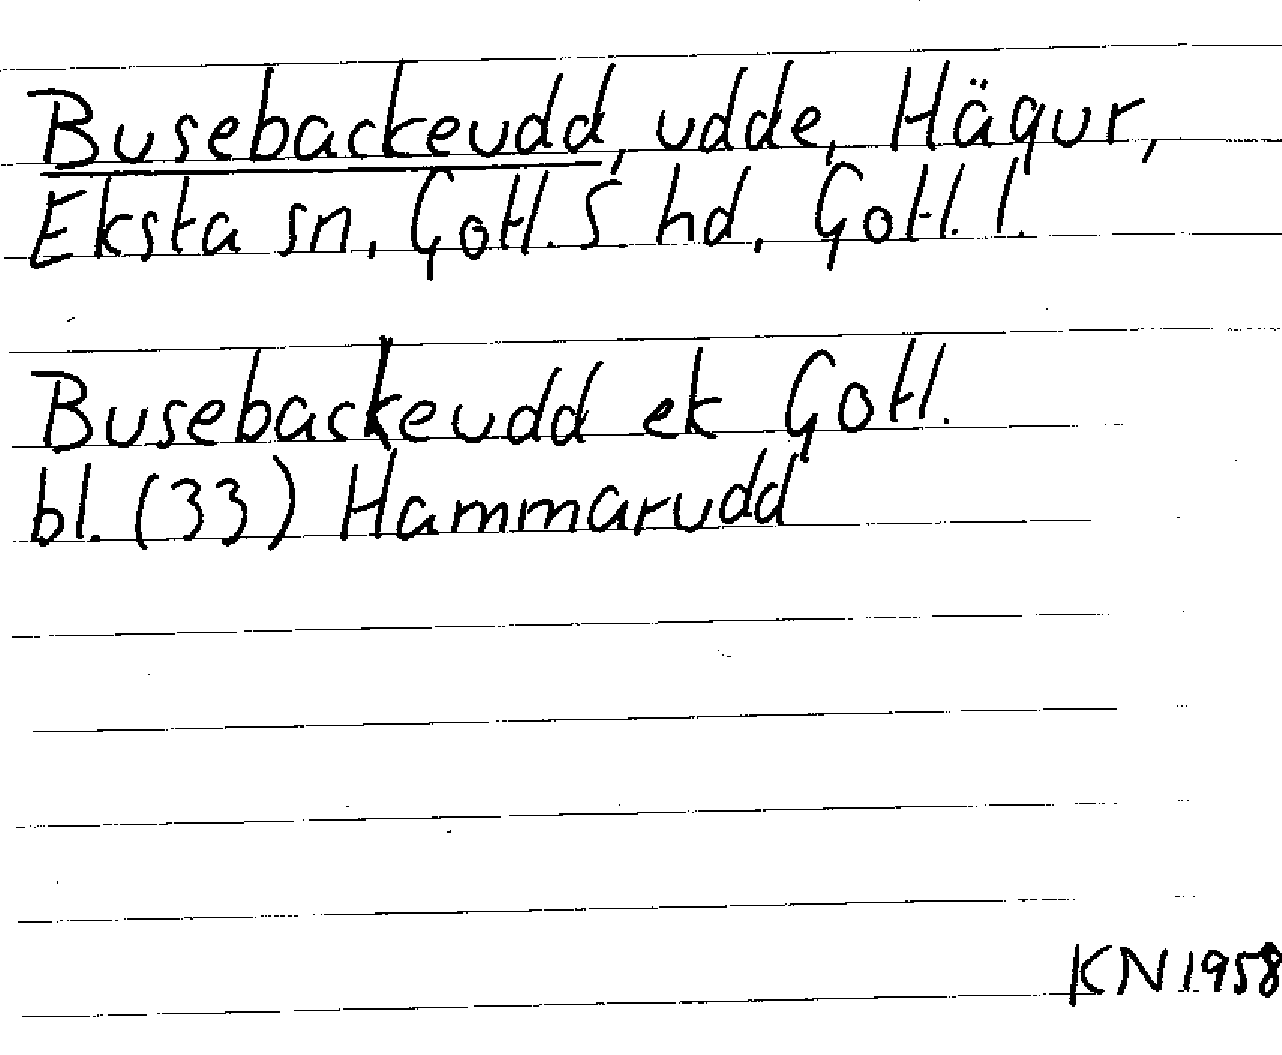 Busebackeudd, udde, Hägur,
Eksta sn, Gotl. S hd, Gotl. l.
Busebackeudd ek Gotl.
bl. (33) Hammarudd
KN 1958